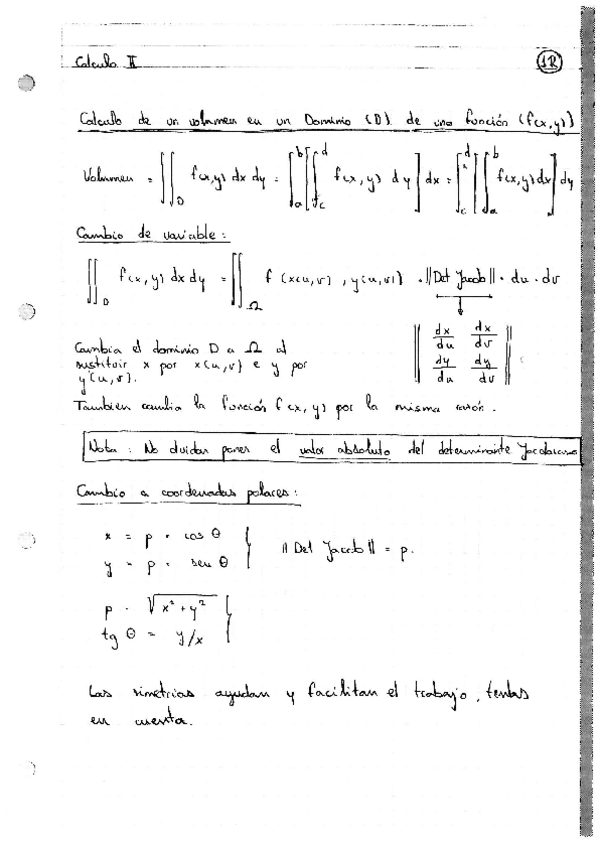 Calculo II
1R
Calculo de un volumen en un Dominio (D) de una función (f(x,y))
Volumen = ∬_D f(x,y) dx dy = ∫_a^b [∫_c^d f(x,y) dy] dx = ∫_c^d [∫_a^b f(x,y) dx] dy
Cambio de variable:
∬_D f(x,y) dx dy = ∬_Ω f(x(u,v), y(u,v)) · ||Det Jacob|| · du · dv
|| dx/du dx/dv ||
|| dy/du dy/dv ||
Cambia el dominio D a Ω al
sustituir x por x(u,v) e y por
y(u,v).
Tambien cambia la función f(x,y) por la misma razón.
Nota: No olvidar poner el valor absoluto del determinante Jacobiano
Cambio a coordenadas polares:
x = p · cos θ
y = p · sen θ
|| Det Jacob || = p.
p = √(x² + y²)
tg θ = y/x
Las simetrias ayudan y facilitan el trabajo, tenlas
en cuenta.